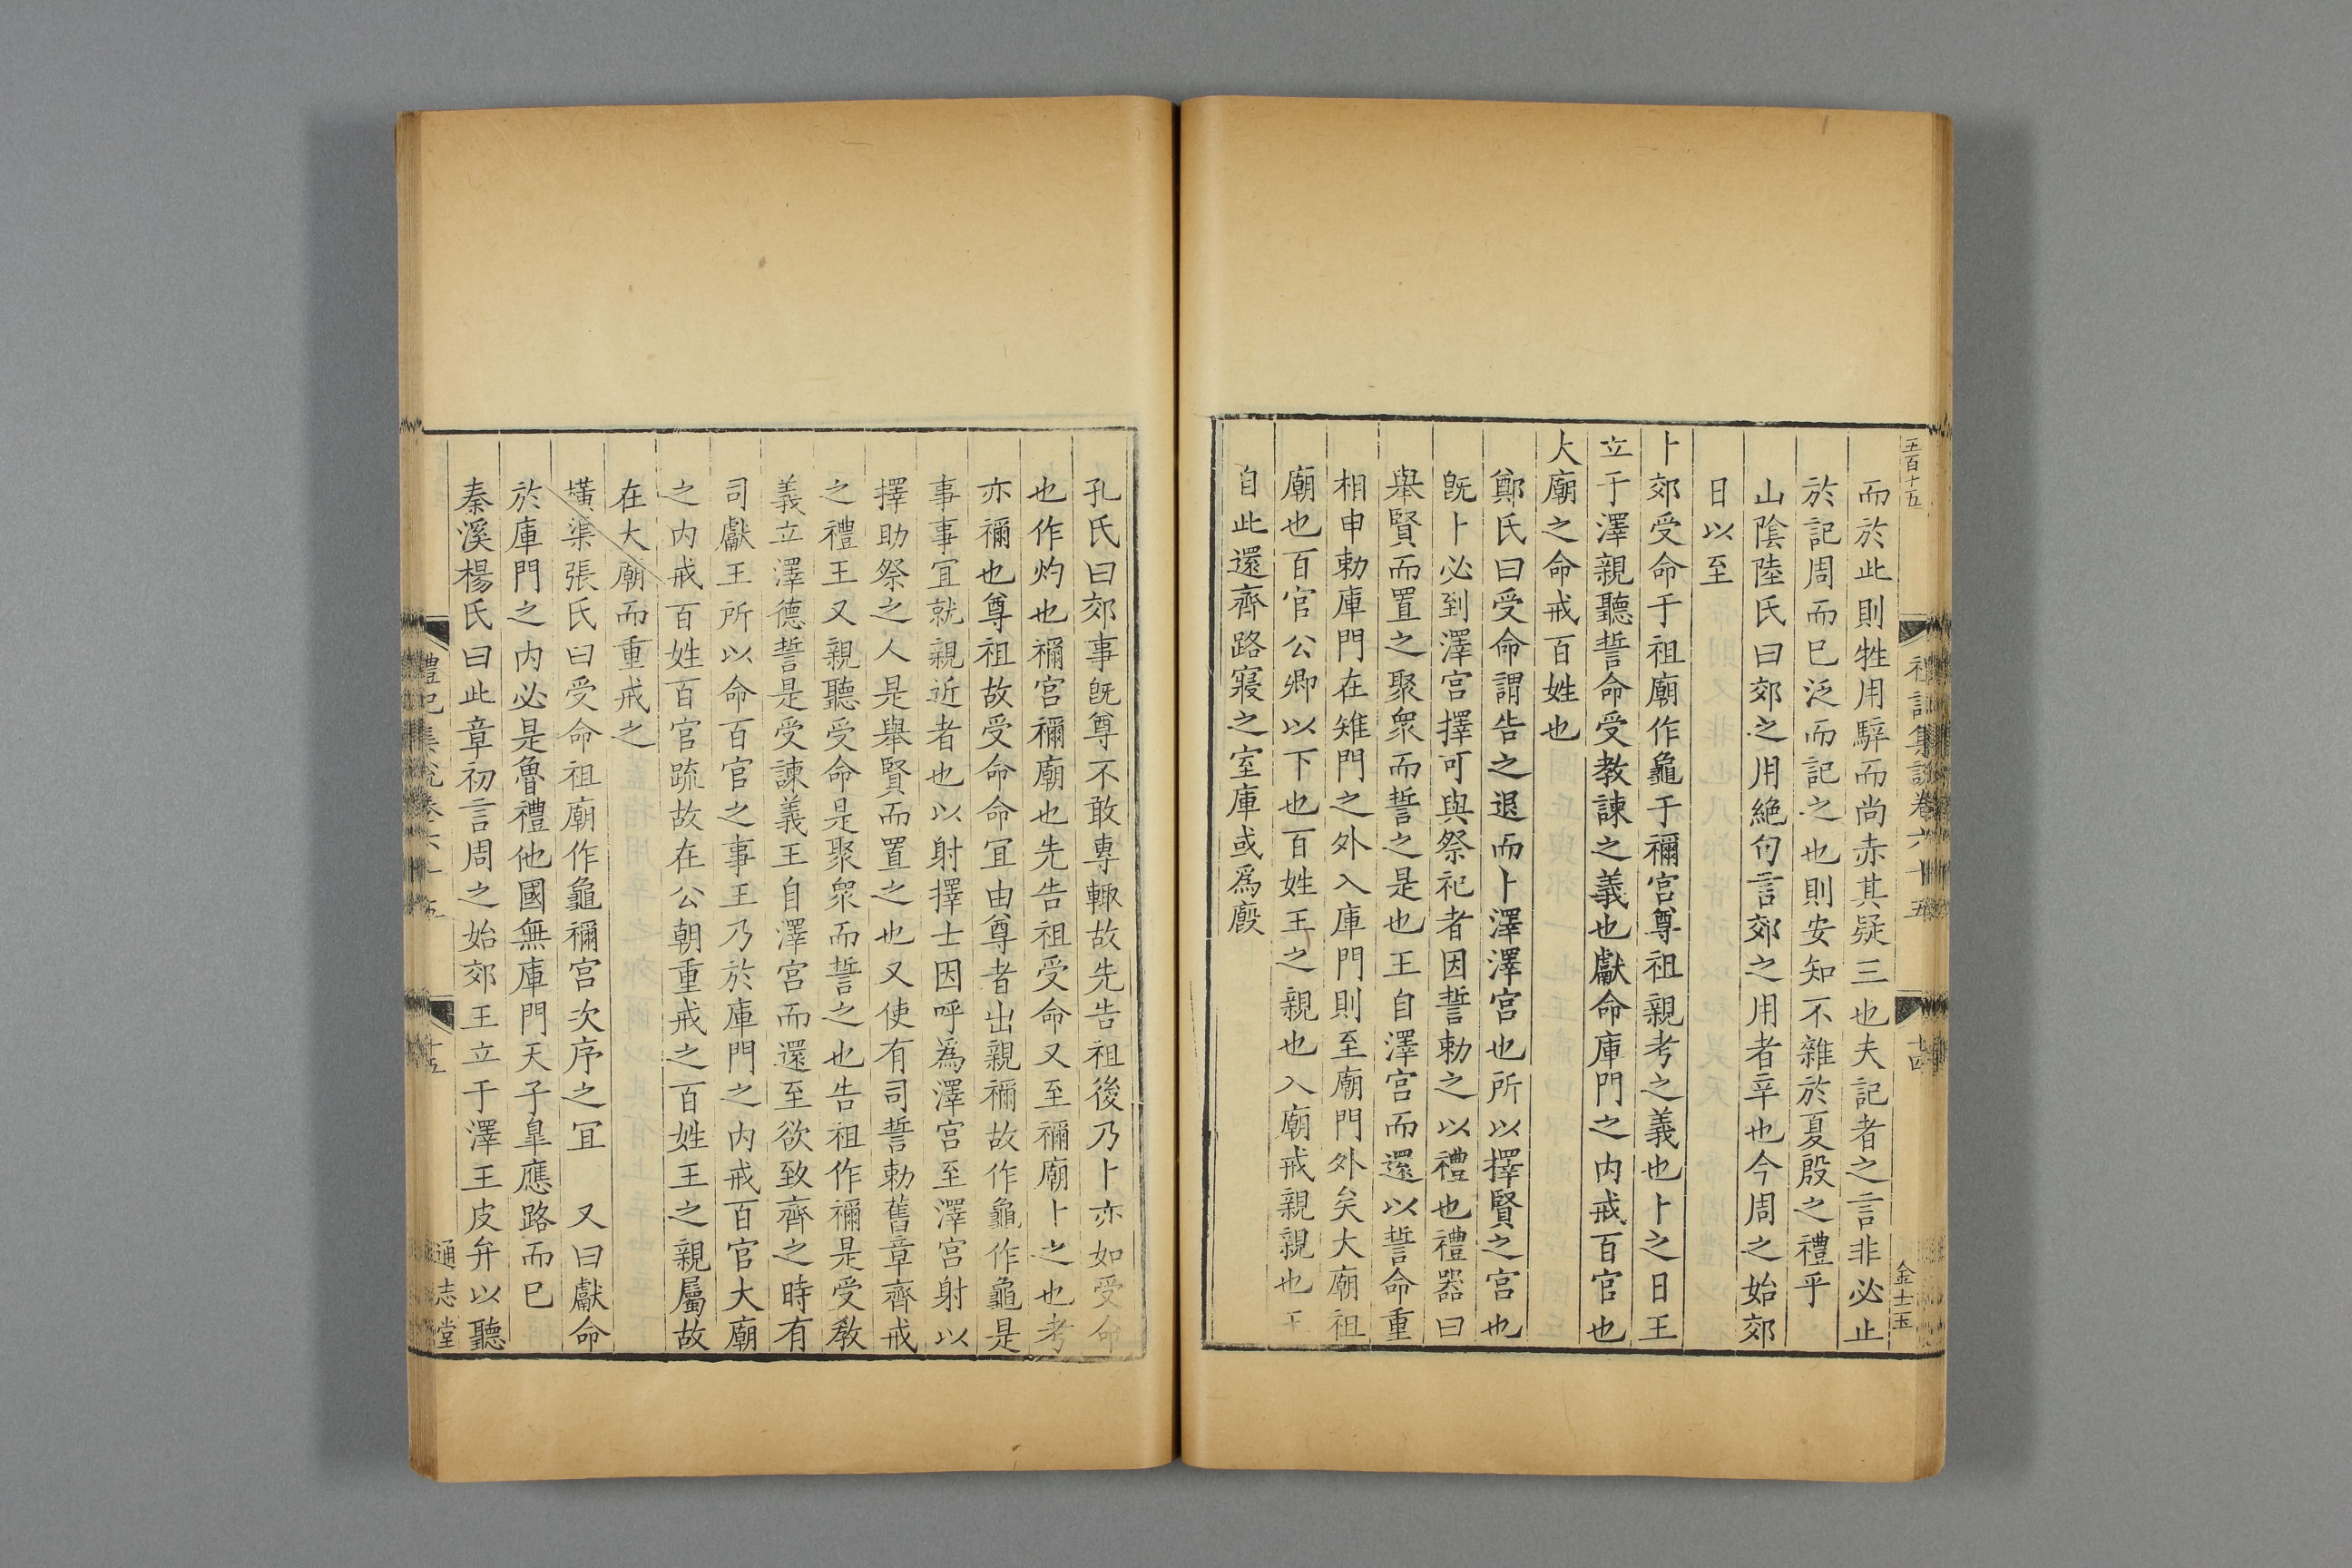 五百十五
禮記集說卷六十五
十四
金士玉
而於此則牲用騂而尚赤其疑三也夫記者之言非必止
於記周而巳泛而記之也則安知不雜於夏殷之禮乎
山陰陸氏曰郊之用絶句言郊之用者辛也今周之始郊
日以至
卜郊受命于祖廟作龜于禰宮尊祖親考之義也卜之日王
立于澤親聽誓命受教諫之義也獻命庫門之内戒百官也
大廟之命戒百姓也
鄭氏曰受命謂告之退而卜澤澤宮也所以擇賢之宮也
旣卜必到澤宮擇可與祭祀者因誓勅之以禮也禮器曰
舉賢而置之聚衆而誓之是也王自澤宮而還以誓命重
相申勅庫門在雉門之外入庫門則至廟門外矣大廟祖
廟也百官公卿以下也百姓王之親也入廟戒親親也王
自此還齊路寢之室庫或爲廏
孔氏曰郊事旣尊不敢專輙故先告祖後乃卜亦如受命
也作灼也禰宮禰廟也先告祖受命又至禰廟卜之也考
亦禰也尊祖故受命命宜由尊者出親禰故作龜作龜是
事事宜就親近者也以射擇士因呼爲澤宮至澤宮射以
擇助祭之人是舉賢而置之也又使有司誓勅舊章齊戒
之禮王又親聽受命是聚衆而誓之也告祖作禰是受敎
義立澤德誓是受諫義王自澤宮而還至欲致齊之時有
司獻王所以命百官之事王乃於庫門之内戒百官大廟
之内戒百姓百官疏故在公朝重戒之百姓王之親屬故
在大廟而重戒之
橫渠張氏曰受命祖廟作龜禰宮次序之宜　又曰獻命
於庫門之内必是魯禮他國無庫門天子臯應路而巳
秦溪楊氏曰此章初言周之始郊王立于澤王皮弁以聽
禮記集說卷六十五
十五
通志堂